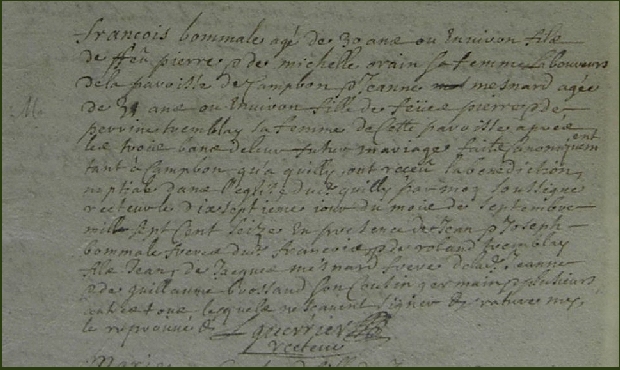 francois bommale agé de 30 ans ou Environ fils
de ffeu pierre & de michelle orain sa femme Laboureurs
de la paroisse de Campbon & Jeanne mesnard agée
de 31 ans ou Environ fille de pierre & de
perrine tremblay sa femme de cette paroisse aprés
les trois bans de leur futur mariage faits canoniquem ent
tant à Campbon qu'a quilly ont receu la benediction
nuptiale dans l'eglise du quilly par moy soussigné
recteur le dix septieme jour du mois de septembre
mill sept Cent seize En presence de Jean & Joseph
bommale freres du françois & de roland tremblay
fils Jean, de Jacques mesnard frere de la Jeanne
& de guillaume brossaud son Cousin germain & plusieurs
autres tous, lesquels ne sçavent signer & rature
le approuvé &
guerrier
recteur